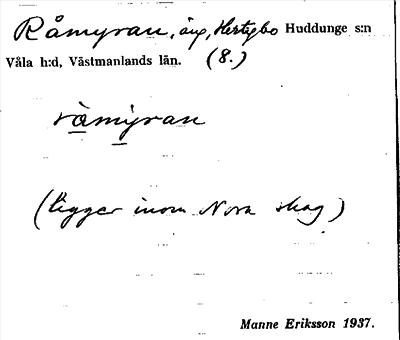 Råmyran, äng, Hertigbo Huddunge s:n
Våla h:d, Västmanlands län. (8.)
ràmy̌ran
(ligger inom Nora skog)
Manne Eriksson 1937.